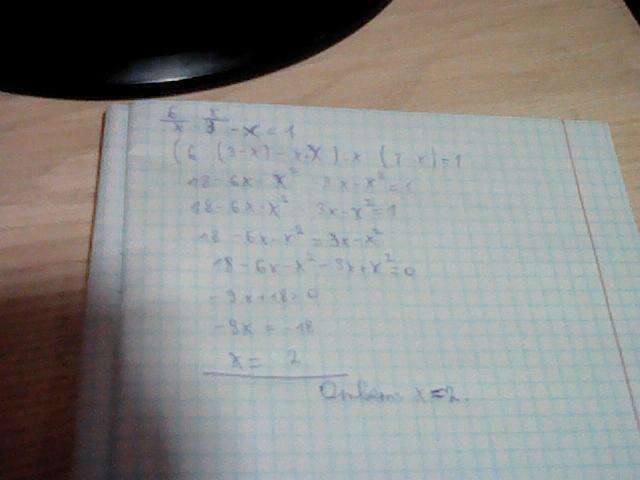 6/x - x/3 - x = 1
(6 (3-x) - x·x) - x (3-x) = 1
18 - 6x - x² 3x - x² = 1
18 - 6x - x² 3x - x² = 1
18 - 6x - x² = 3x - x²
18 - 6x - x² - 3x + x² = 0
-9x + 18 = 0
-9x = -18
x = 2
Ответ: x = 2.